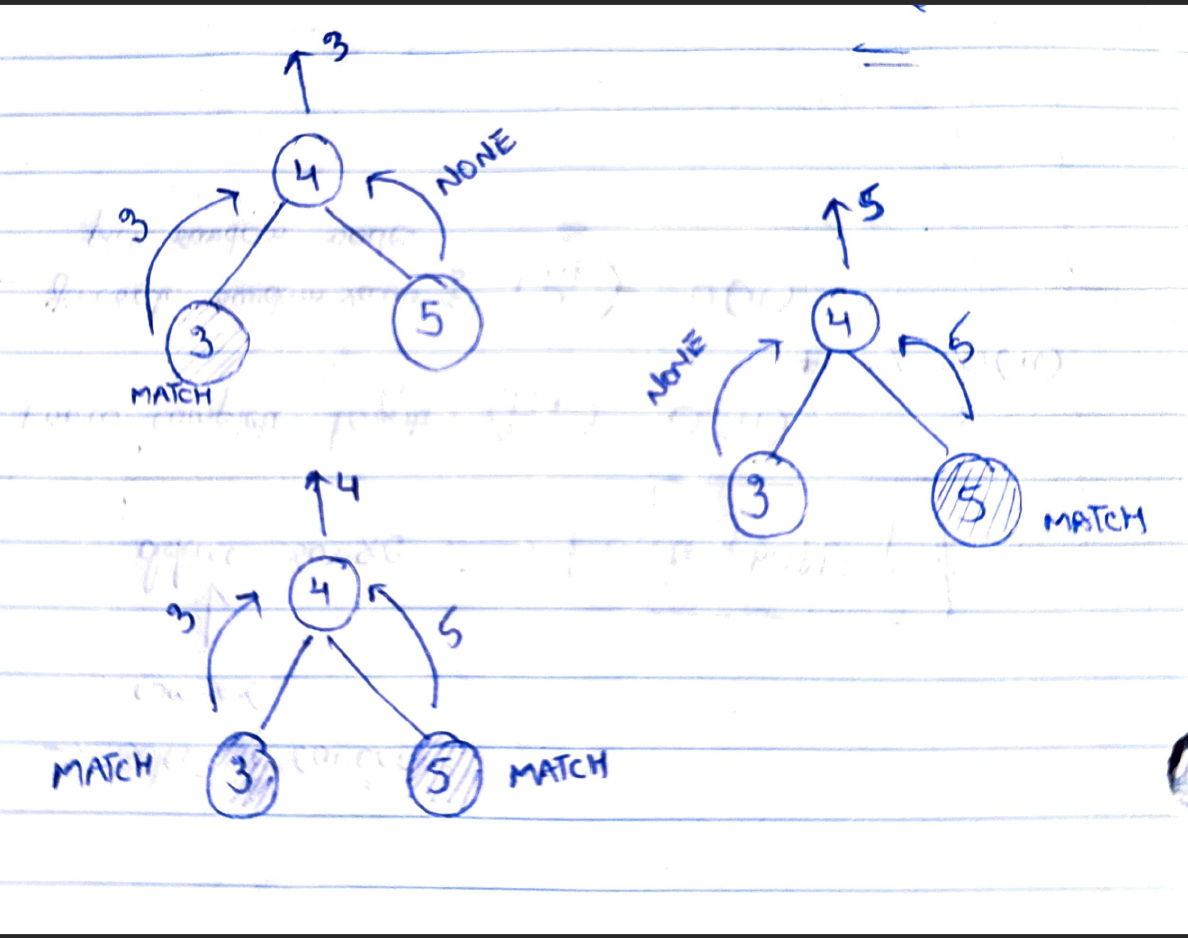 3
4
NONE
3
3
5
MATCH
5
4
NONE
5
3
5
MATCH
4
4
3
5
MATCH
3
5
MATCH